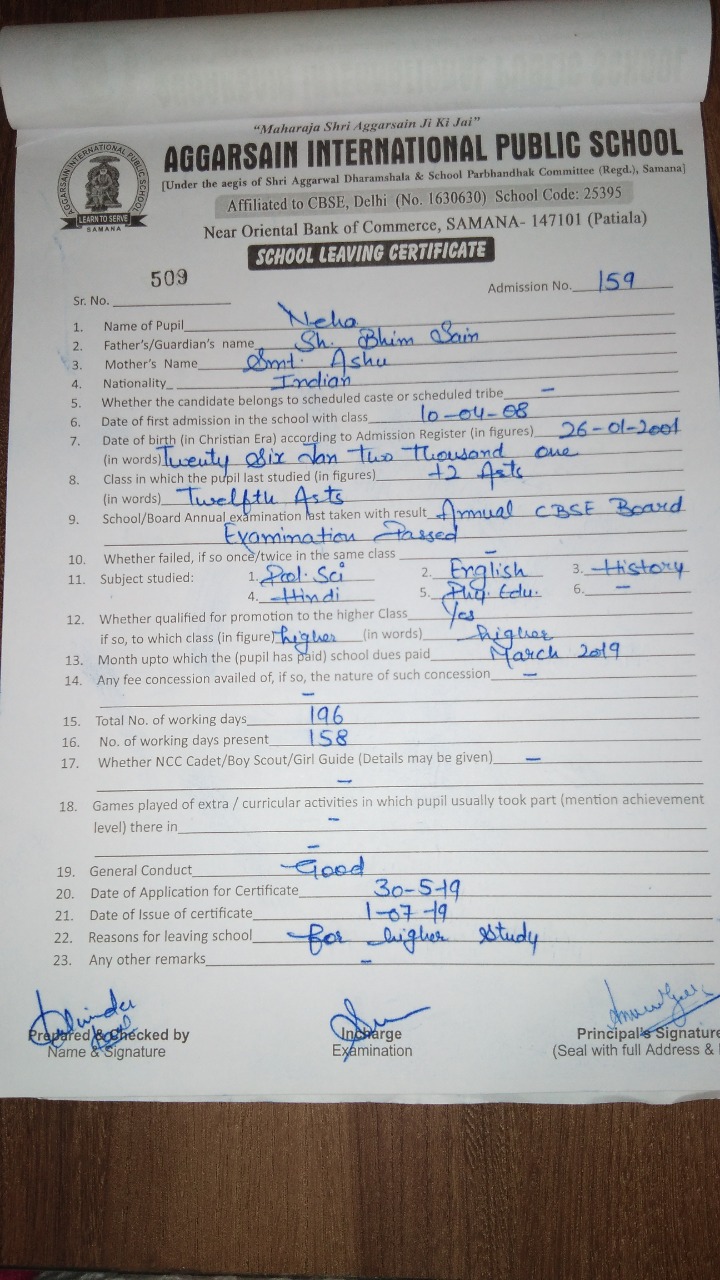 "Maharaja Shri Aggarsain Ji Ki Jai"
AGGARSAIN INTERNATIONAL PUBLIC SCHOOL
AGGARSAIN INTERNATIONAL PUBLIC SCHOOL
LEARN TO SERVE
SAMANA
[Under the aegis of Shri Aggarwal Dharamshala & School Parbhandhak Committee (Regd.), Samana]
Affiliated to CBSE, Delhi (No. 1630630) School Code: 25395
Near Oriental Bank of Commerce, SAMANA- 147101 (Patiala)
SCHOOL LEAVING CERTIFICATE
Sr. No. 509 Admission No. 159
1. Name of Pupil Neha
2. Father's/Guardian's name Sh. Bhim Sain
3. Mother's Name Smt. Ashu
4. Nationality Indian
5. Whether the candidate belongs to scheduled caste or scheduled tribe –
6. Date of first admission in the school with class 10-04-08
7. Date of birth (in Christian Era) according to Admission Register (in figures) 26-01-2001
(in words) Twenty Six Jan Two Thousand one
8. Class in which the pupil last studied (in figures) +2 Arts
(in words) Twelfth Arts
9. School/Board Annual examination last taken with result Annual CBSE Board
Examination Passed
10. Whether failed, if so once/twice in the same class –
11. Subject studied: 1. Pol. Sci 2. English 3. History
4. Hindi 5. Phy. Edu. 6. –
12. Whether qualified for promotion to the higher Class Yes
if so, to which class (in figure) higher (in words) higher
13. Month upto which the (pupil has paid) school dues paid March 2019
14. Any fee concession availed of, if so, the nature of such concession –
–
15. Total No. of working days 196
16. No. of working days present 158
17. Whether NCC Cadet/Boy Scout/Girl Guide (Details may be given) –
–
18. Games played of extra / curricular activities in which pupil usually took part (mention achievement
level) there in –
–
19. General Conduct Good
20. Date of Application for Certificate 30-5-19
21. Date of Issue of certificate 1-07-19
22. Reasons for leaving school for higher study
23. Any other remarks –
Prepared & Checked by Incharge Principal's Signature
Name & Signature Examination (Seal with full Address &